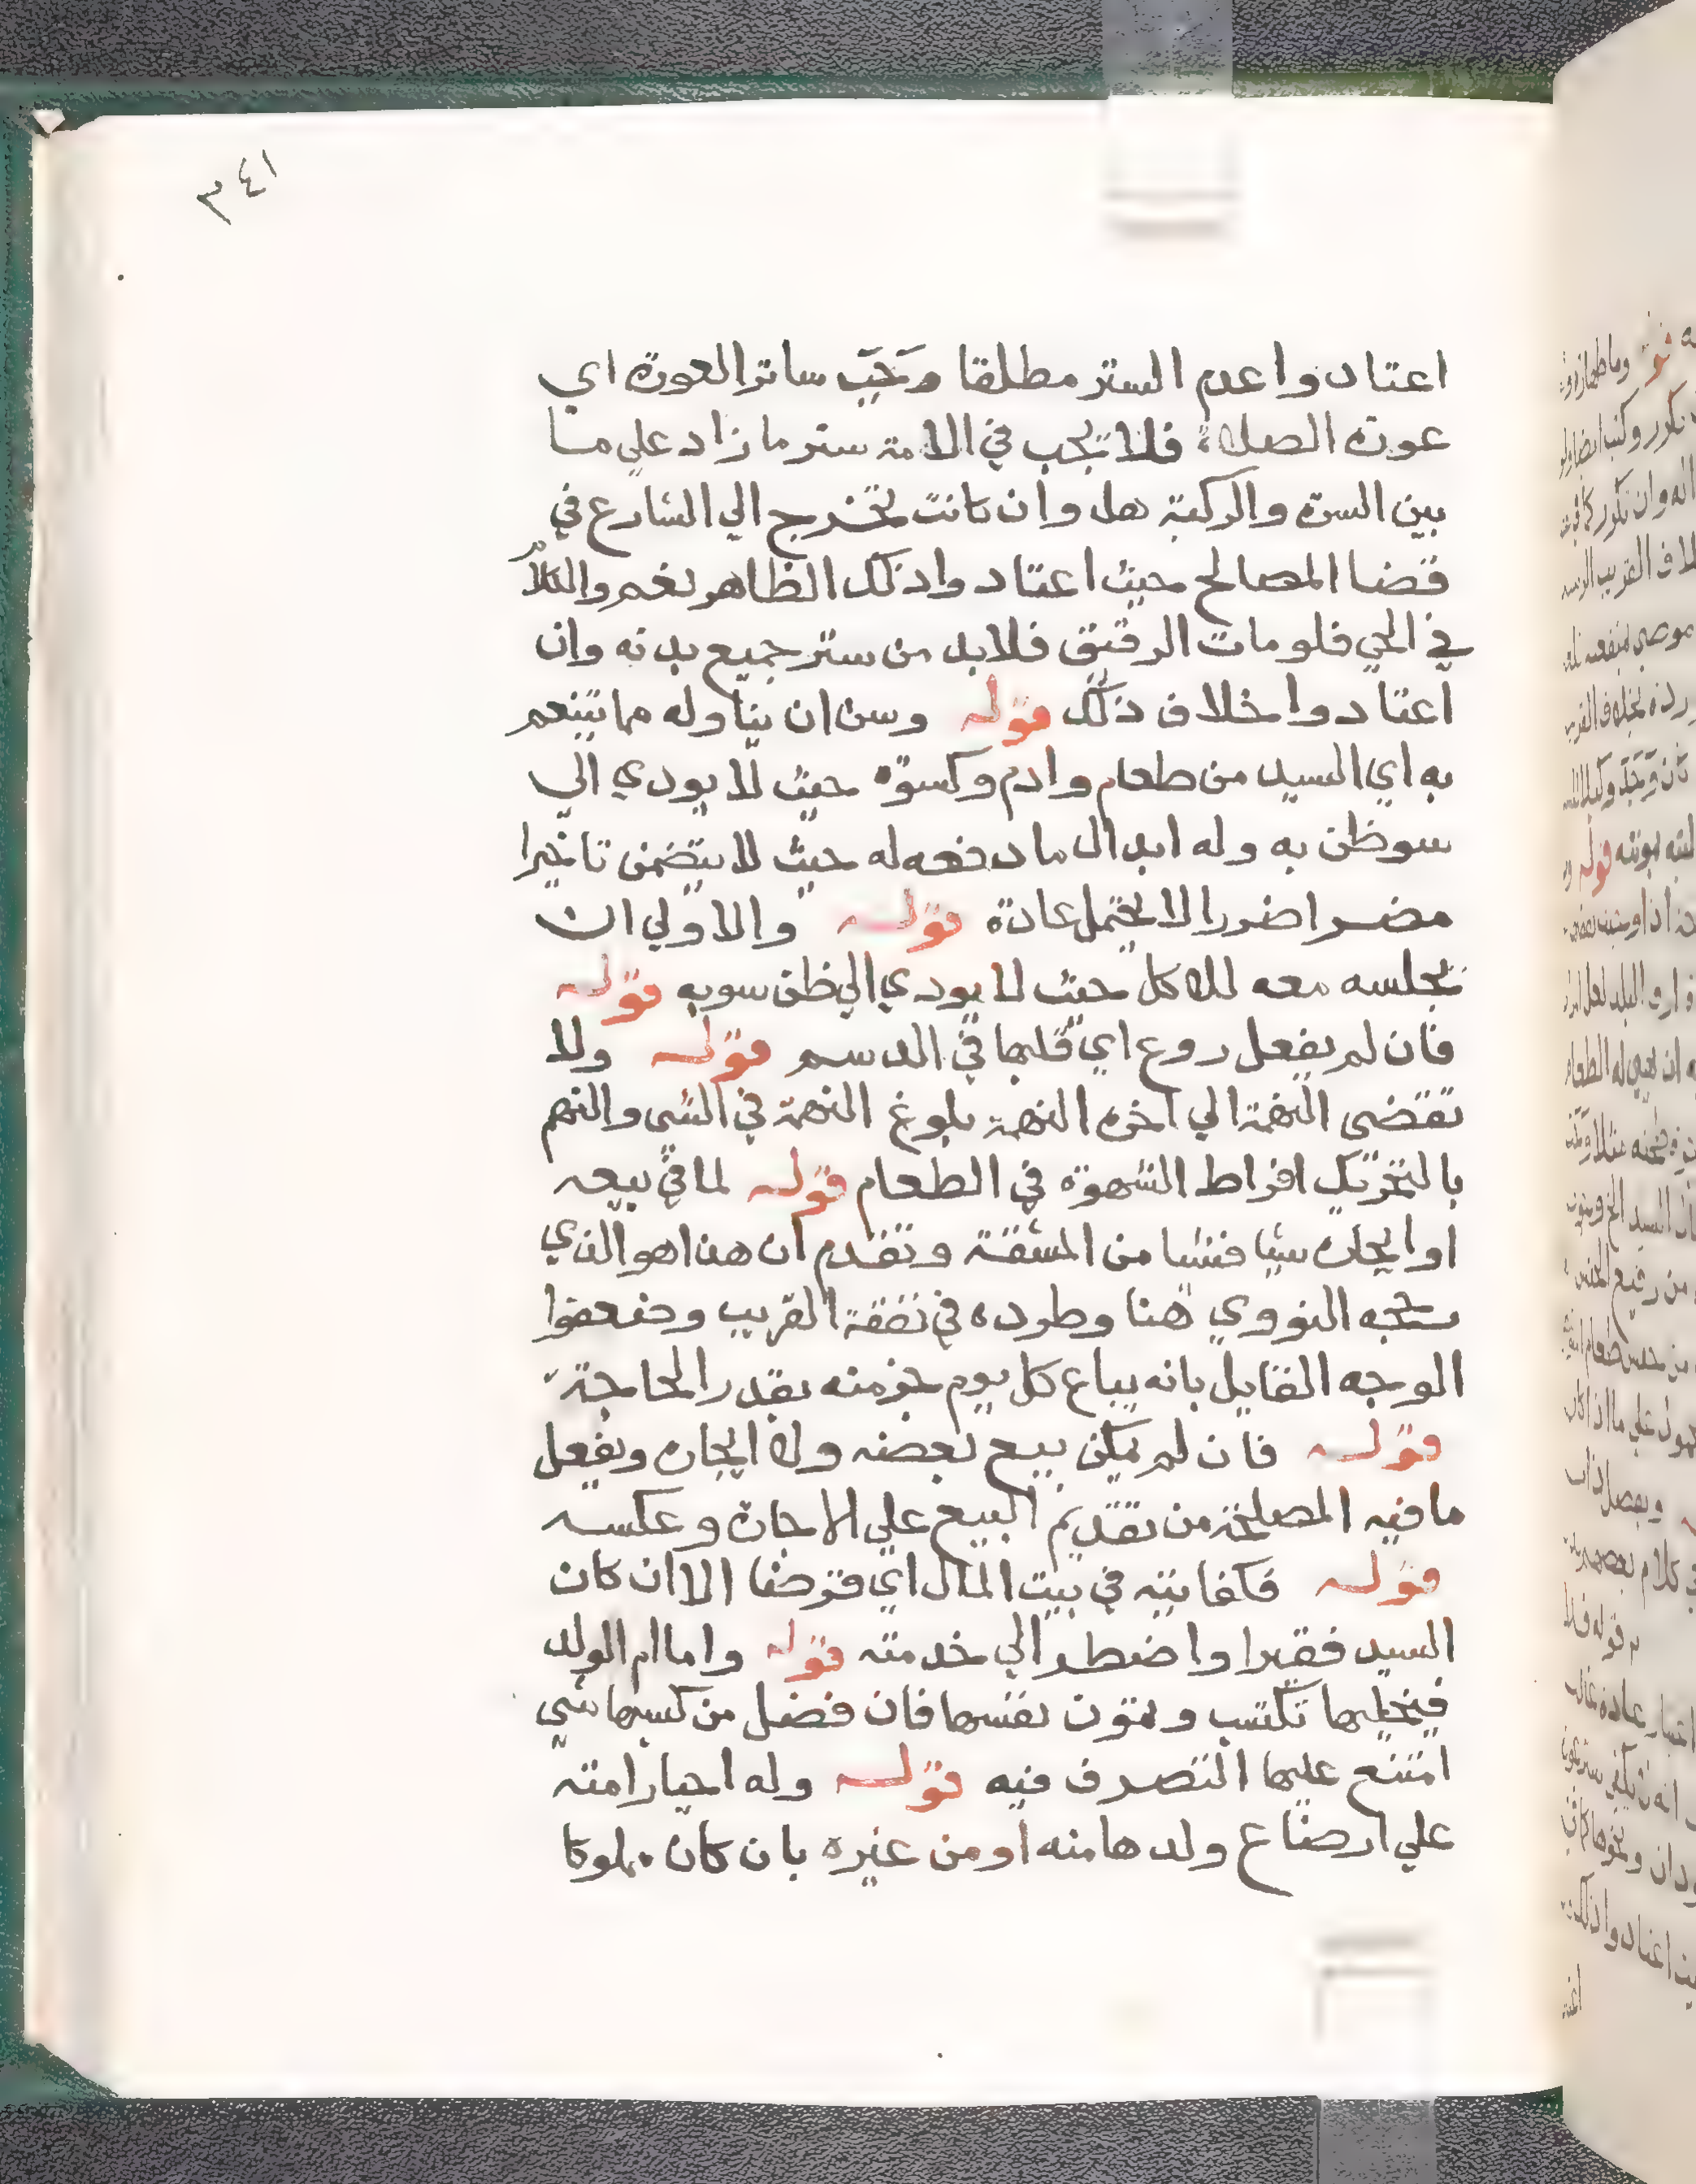 ٣٤١
اعتادوا عدم الستر مطلقا ويجب ساتر العورة اي
عورة الصلاة فلا يجب في الامة ستر ما زاد على ما
بين السرة والركبة هل وان كانت تخرج الي الشارع في
قضا المصالح حيث اعتادوا ذلك الظاهر نعم والكلام
في الحي فلو مات الرقيق فلا بد من ستر جميع بدنه وان
اعتادوا خلاف ذلك قوله وسن ان يناوله مما يتنعم
به اي السيد من طعام وادم وكسوة حيث لا يودي الي
سوظن به وله ابدال ما دفعه له حيث لا يتضمن تاخيرا
مضرا ضررا لا يحتمل عادة قوله والاولي ان
يجلسه معه للاكل حيث لا يودي الي ظن سوبه قوله
فان لم يفعل روغ اي قلبها في الدسم قوله ولا
تقضي النهمة الي اخره النهمة بلوغ الهمة في الشي والنهم
بالتحريك افراط الشهوة في الطعام قوله لما في بيعه
او ايجاره شيا فشيا من المشقة وتقدم ان هذا هو الذي
صححه النووي هنا وطرده في نفقة القريب وضعفوا
الوجه القايل بانه يباع كل يوم جزمنه بقدر الحاجة
قوله فان لم يمكن بيع بعضه ولا ايجاره ويفعل
ما فيه المصلحة من تقديم البيع علي الاجارة وعكسه
قوله فكفايته في بيت المال اي قرضا الا ان كان
السيد فقيرا واضطر الي خدمته قوله واما ام الولد
فيخليها تكتسب وتمون نفسها فان فضل من كسبها شي
امتنع عليها التصرف فيه قوله وله اجبار امته
علي ارضاع ولدها منه او من غيره بان كان مملوكا